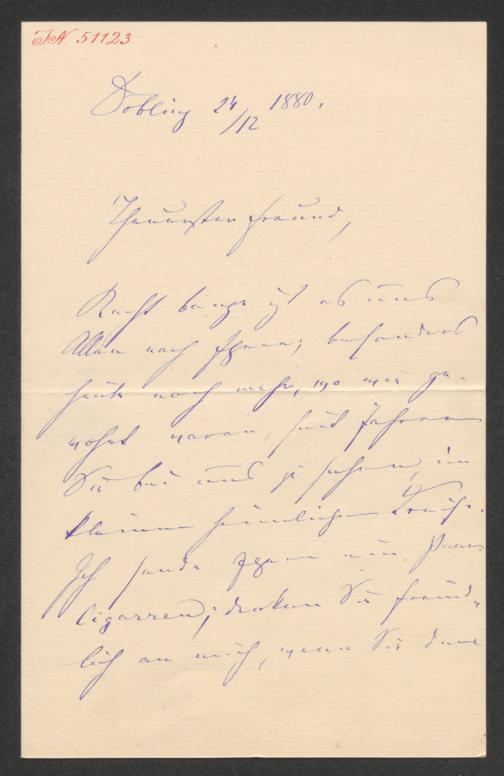 J.N. 51123
Döbling 24/12 1880.
Theuerster Freund,
Recht bange ist es uns
Allen nach Ihnen; besonders
heute noch mehr, wo wir ge-
wohnt waren, seit Jahren
Sie bei uns zu sehen, im
kleinen heimlichen Kreise.
Ich sende Ihnen ein Paar
Cigarren; denken Sie freund-
lich an mich, wenn Sie dann